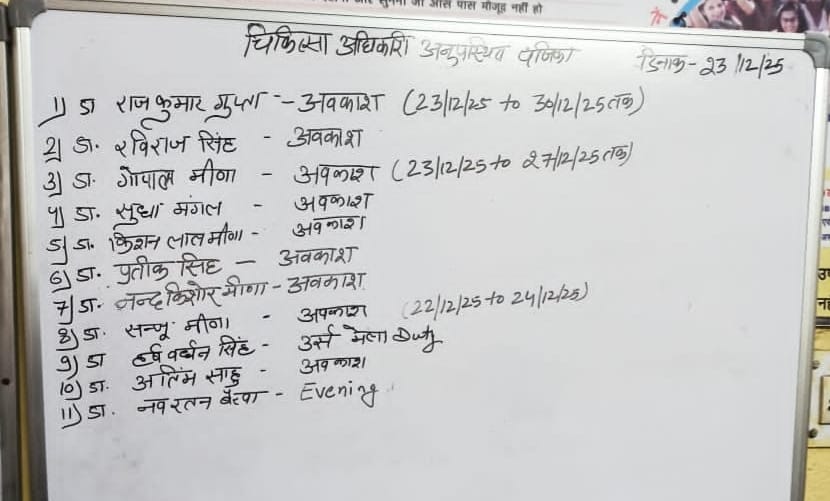 आस पास मौजूद नहीं हो
चिकित्सा अधिकारी अनुपस्थित पंजिका दिनाक - 23/12/25
1) डा राजकुमार गुप्ता - अवकाश (23/12/25 to 30/12/25 तक)
2) डा. रविराज सिंह - अवकाश
3) डा. गोपाल मीणा - अवकाश (23/12/25 to 27/12/25 तक)
4) डा. सुधा मंगल - अवकाश
5) डा. किशन लाल मीणा - अवकाश
6) डा. प्रतीक सिंह - अवकाश
7) डा. नन्द किशोर मीणा - अवकाश
8) डा. सन्जू मीणा - अवकाश (22/12/25 to 24/12/25)
9) डा हर्ष वर्धन सिंह - उर्स मेला Duty
10) डा. अतिंम साहु - अवकाश
11) डा. नवरतन बैरवा - Evening